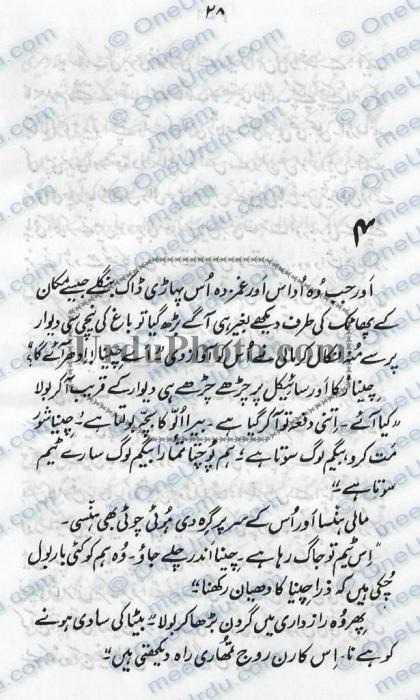 ۲۸
۴
اَور جب وُہ اُداس اَور غمزدہ اُس پہاڑی ڈاک بنگلے جیسے مکان
کے پھاٹک کی طرف دیکھے بغیر ہی آگے بڑھ گیا تو باغ کی نیچی سی دیوار
پر سے مُنہ نکال کر مالی نے اُس کو آواز دی چینیا! اِدھر آئے گا؟
چینیا رُکا اَور سائیکل پر چڑھے چڑھے ہی دیوار کے قریب آ کر بولا
"کیا آئے۔ اِتنی دفعہ تو آ کر گیا ہے۔ بیرا اُلّو کا بچّہ بولتا ہے؛ چینیا شور
مَت کرو، بیگم لوگ سوتا ہے؛ ہم پوچھتا تمُھارا بیگم لوگ سارے ٹیم
سوتا ہے"
مالی ہنسا اَور اُس کے سر پر گِرہ دی ہُوئی چوٹی بھی ہنسی۔
"اِس ٹیم تو جاگ رہا ہے۔ چینیا اندر چلے جاؤ۔ وُہ ہم کو کئی بار بول
چُکی ہیں کہ ذرا چینیا کا دھیان رکھنا"
پِھر وُہ رازداری میں گردن بڑھا کر بولا "بیٹیا کی سادی ہونے
کو ہے نا۔ اِس کارن روج تمُھاری راہ دیکھتی ہیں"
© OneUrdu.com
UrduPhoto.com